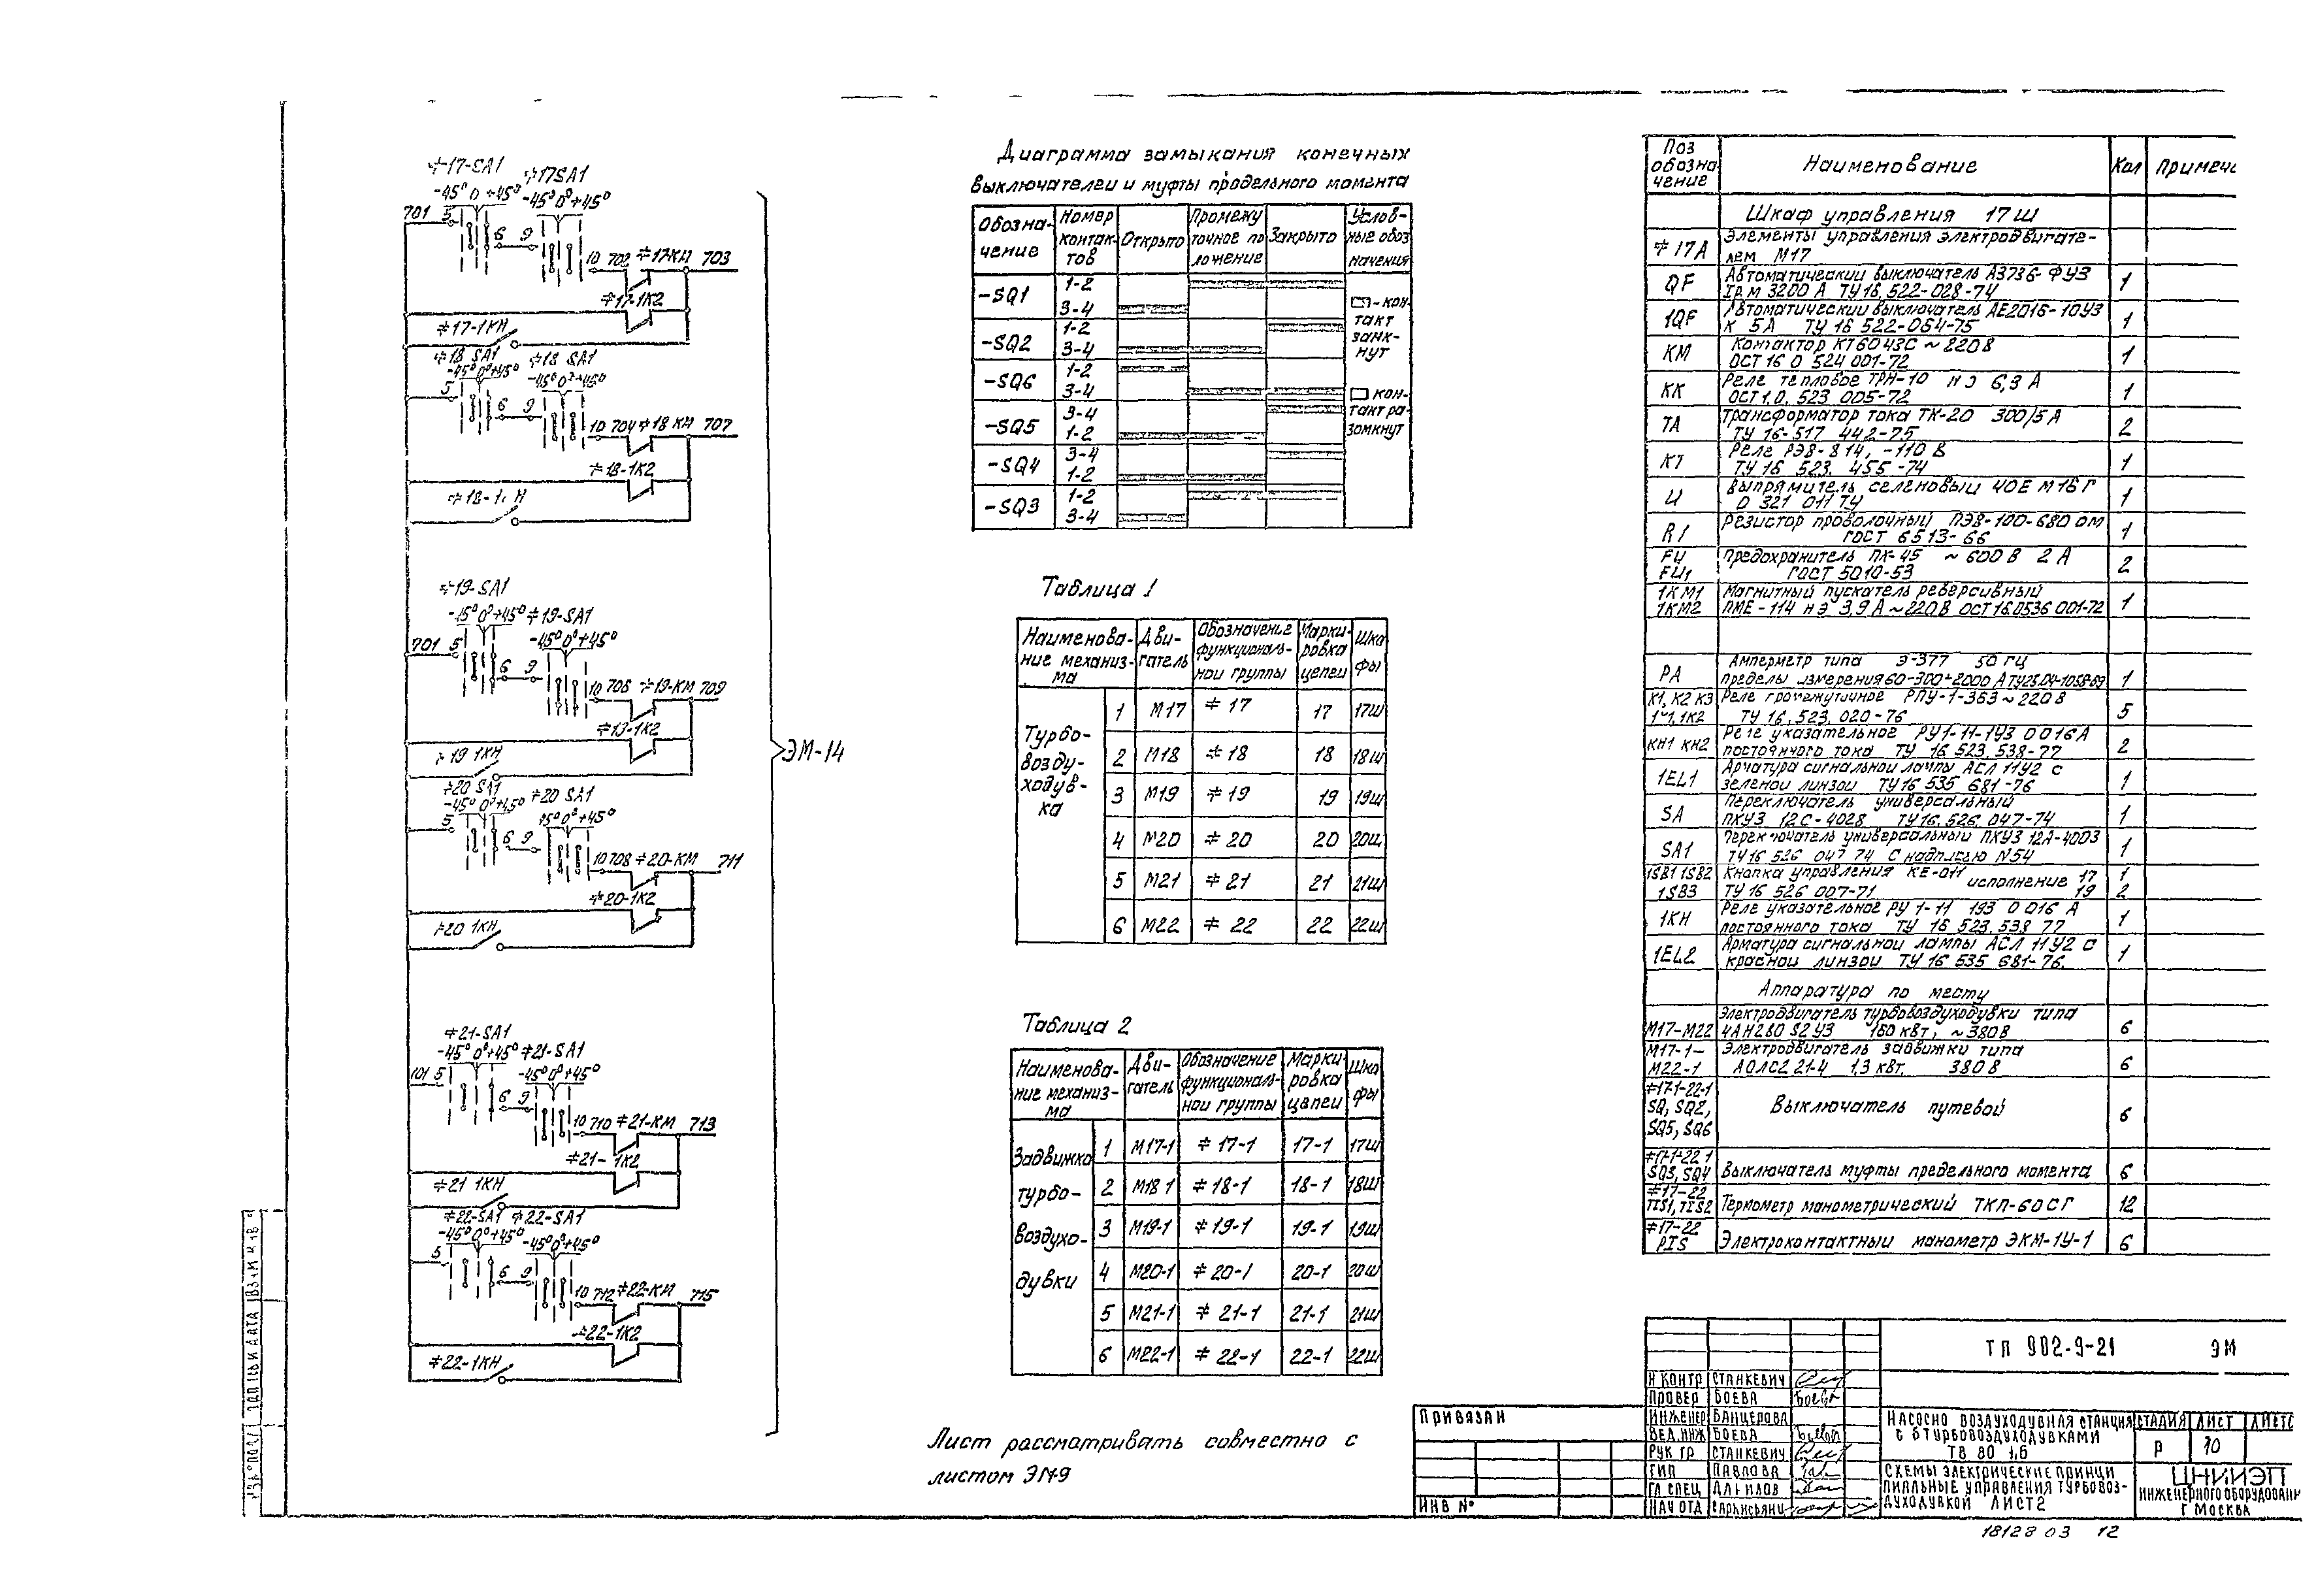 ≑17-SA1
≑17SA1
-45° 0 +45°
-45° 0° +45°
701 5
6 9
10 702 ≑17-КМ 703
≑17-1К2
≑17-1КН
≑18 SA1
≑18 SA1
-45° 0° +45°
-45° 0° +45°
5
6 9
10 704 ≑18 КМ 707
≑18-1К2
≑19-SA1
≑19-SA1
-45° 0° +45°
701 5
6 9
10 708 ≑19-КМ 709
≑19 1КН
≑20 SA1
≑20 SA1
-45° 0° +45°
5
6 9
10 708 ≑20-КМ 711
≑20-1К2
≑20 1КН
≑21-SA1
-45° 0° +45° ≑21-SA1
-45° 0° +45°
5
6 9
10 710 ≑21-КМ 713
≑21-1К2
≑21 1КН
≑22-SA1 ≑22-SA1
-45° 0° +45°
-45° 0° +45°
5
6 9
10 712 ≑22-КМ 715
≑22-1К2
≑22-1КН
ЭМ-14
Диаграмма замыкания конечных
выключателей и муфты предельного момента
Обозна-
чение
Номер
контак-
тов
Открыто
Промежу
точное по
ложение
Закрыто
Услов-
ные обоз
начения
-SQ1 1-2
3-4
-SQ2 1-2
3-4
-SQ6 1-2
3-4
-SQ5 3-4
1-2
-SQ4 3-4
1-2
-SQ3 1-2
3-4
-кон-
такт
замк-
нут
кон-
такт ра-
зомкнут
Таблица 1
Наименова-
ние механиз-
ма
Дви-
гатель
Обозначение
функциональ-
ной группы
Марки-
ровка
цепей
Шка
фы
Турбо-
возду-
ходув-
ка
1 М17 ≑17 17 17Ш
2 М18 ≑18 18 18Ш
3 М19 ≑19 19 19Ш
4 М20 ≑20 20 20Ш
5 М21 ≑21 21 21Ш
6 М22 ≑22 22 22Ш
Таблица 2
Наименова-
ние механиз-
ма
Дви-
гатель
Обозначение
функциональ-
ной группы
Марки-
ровка
цепей
Шка
фы
Задвижка
турбо-
воздухо-
дувки
1 М17-1 ≑17-1 17-1 17Ш
2 М18 1 ≑18-1 18-1 18Ш
3 М19-1 ≑19-1 19-1 19Ш
4 М20-1 ≑20-1 20-1 20Ш
5 М21-1 ≑21-1 21-1 21Ш
6 М22-1 ≑22-1 22-1 22Ш
Лист рассматривать совместно с
листом ЭМ9
Поз
обозна
чение
Наименование
Кол
Примеча
Шкаф управления 17Ш
≑17А Элементы управления электродвигате-
лем М17
QF Автоматический выключатель А3736-ФУ3 1
Iр.м 3200 А ТУ16.522-028-74
1QF Автоматический выключатель АЕ2016-10У3 1
К 5А ТУ 16 522-064-75
КМ Контактор КТ6043С ~220В 1
ОСТ 16 0 524 001-72
КК Реле тепловое ТРН-10 Н Э 6,3 А 1
ОСТ1.0. 523 005-72
ТА Трансформатор тока ТК-20 300/5 А 2
ТУ 16-517 442-75
КТ Реле РЭВ-814, -110 В 1
ТУ 16 523. 455-74
И Выпрямитель селеновый 40Е М16Г 1
О 321 011 ТУ
R1 Резистор проволочный ПЭВ-100-680 ом 1
ГОСТ 6513-66
FU Предохранитель ПК-45 ~600 В 2 А 2
FU1 ГОСТ 5010-53
1КМ1 Магнитный пускатель реверсивный 1
1КМ2 ПМЕ-114 н Э 3,9 А ~220В ОСТ 16.0536 001-72
РА Амперметр типа Э-377 50 гц 1
пределы измерения 60-300÷2000 А ТУ25.04-1058-69
К1, К2 К3 Реле промежуточное РПУ-1-363 ~220В 5
1К2 ТУ 16.523.020-76
КН1 КН2 Реле указательное РУ1-11-1У3 0 016 А 2
постоянного тока ТУ 16 523.538-77
1EL1 Арматура сигнальной лампы АСЛ 11У2 с 1
зеленой линзой ТУ 16 535 681-76
SA Переключатель универсальный 1
ПКУ3 12С-4028 ТУ16.526.047-74
SA1 Переключатель универсальный ПКУ3 12А-4003 1
ТУ16 526 047 74 С надписью N54
1SB1 1SB2 Кнопка управления КЕ-011 исполнение 17 1
1SB3 ТУ 16 526 007-71 19 2
1КН Реле указательное РУ 1-11 1У3 0 016 А 1
постоянного тока ТУ 16 523.538 77
1EL2 Арматура сигнальной лампы АСЛ 11У2 с 1
красной линзой ТУ 16 535 681-76.
Аппаратура по месту
М17-М22 Электродвигатель турбовоздуходувки типа 6
4АН280 S2У3 160 кВт, ~380В
М17-1- Электродвигатель задвижки типа
М22-1 АОЛС2 21-4 1,3 кВт, 380В 6
≑17-1-22-1
SQ, SQ2,
SQ5, SQ6
Выключатель путевой 6
≑17-1-22 1
SQ3, SQ4 Выключатель муфты предельного момента 6
≑17-22
TIS1, TIS2 Термометр манометрический ТКП-60СГ 12
≑17-22
PIS Электроконтактный манометр ЭКМ-1У-1 6
ТП 902-9-21 ЭМ
Н КОНТР СТАНКЕВИЧ
ПРОВЕР БОЕВА
ИНЖЕНЕР БАНЦЕРОВА
ВЕД.ИНЖ БОЕВА
РУК ГР СТАНКЕВИЧ
ГИП ПАВЛОВА
ГЛ СПЕЦ
НАЧ ОТД
НАСОСНО ВОЗДУХОДУВНАЯ СТАНЦИЯ
С 6 ТУРБОВОЗДУХОДУВКАМИ
ТВ 80 1,6
СТАДИЯ ЛИСТ ЛИСТО
Р 10
СХЕМЫ ЭЛЕКТРИЧЕСКИЕ ПРИНЦИ
ПИАЛЬНЫЕ УПРАВЛЕНИЯ ТУРБОВОЗ-
ДУХОДУВКОЙ ЛИСТ2
ЦНИИЭП
ИНЖЕНЕРНОГО ОБОРУДОВАНИ
Г МОСКВА
Привязан
ИНВ №
18128 03 12